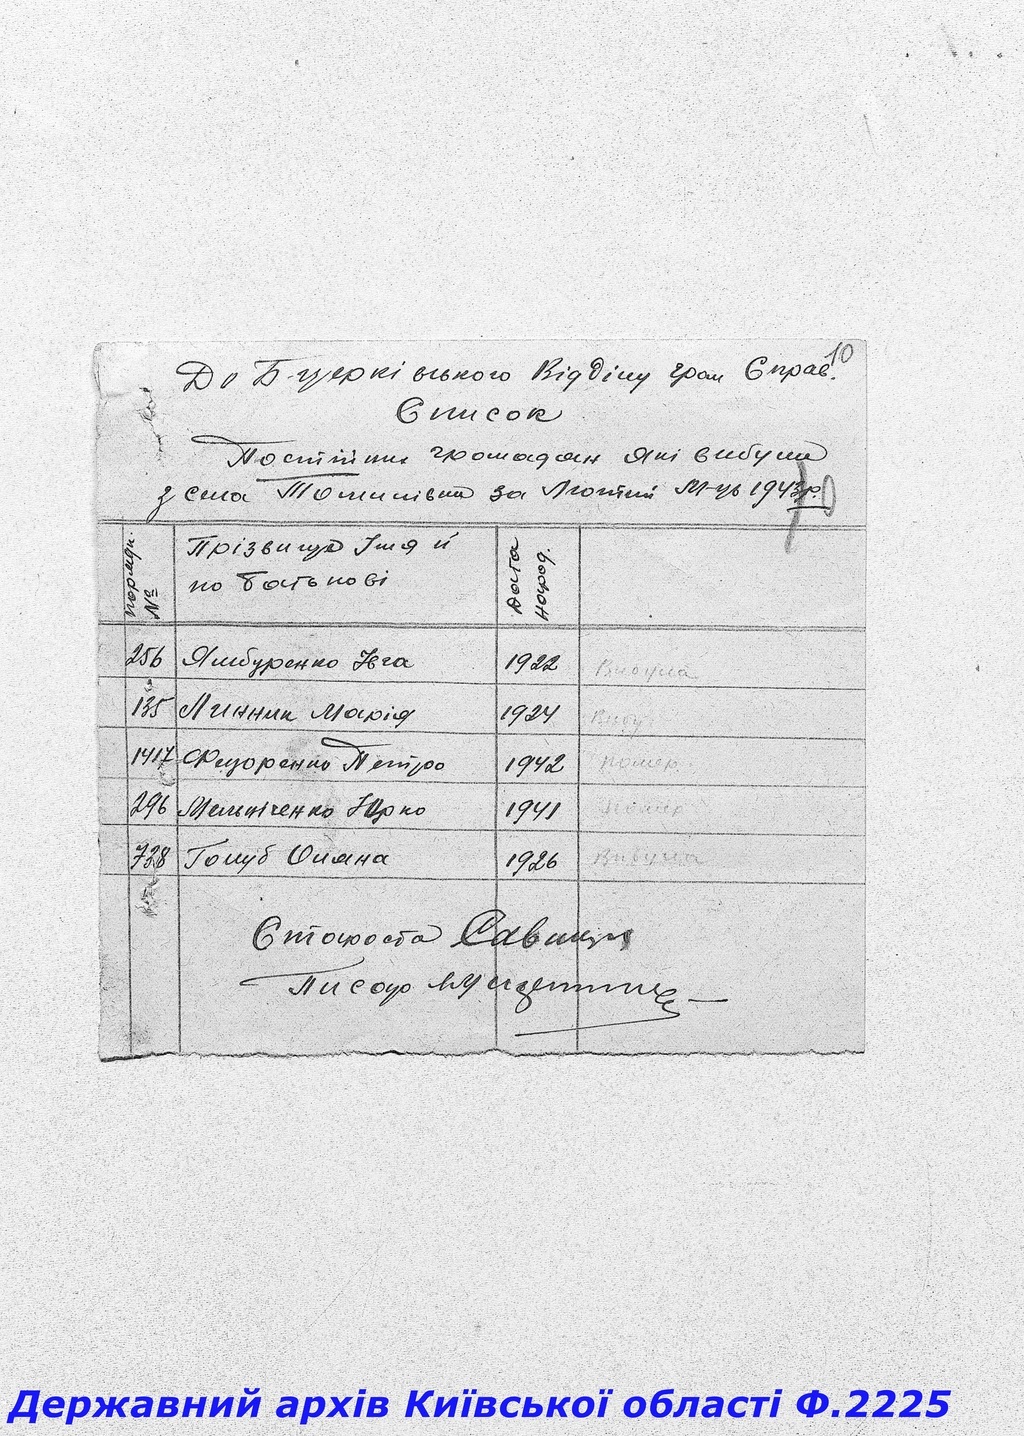 10
До Б-церківського Відділу гром Справ.
Список
Постійних громадян які вибули
з села Томилівки за Лютий М-ць 1943р.
порядк. №
Прізвище Імя й по батькові
Дата народ.
256 Ямбуренко Івга 1922 Вибула
135 Линник Марія 1924 Вибу
1417 Федоренко Петро 1942 помер
296 Мельніченко Юрко 1941 помер
728 Голуб Уляна 1926 Вибула
Староста
Писар
Державний архів Київської області Ф.2225